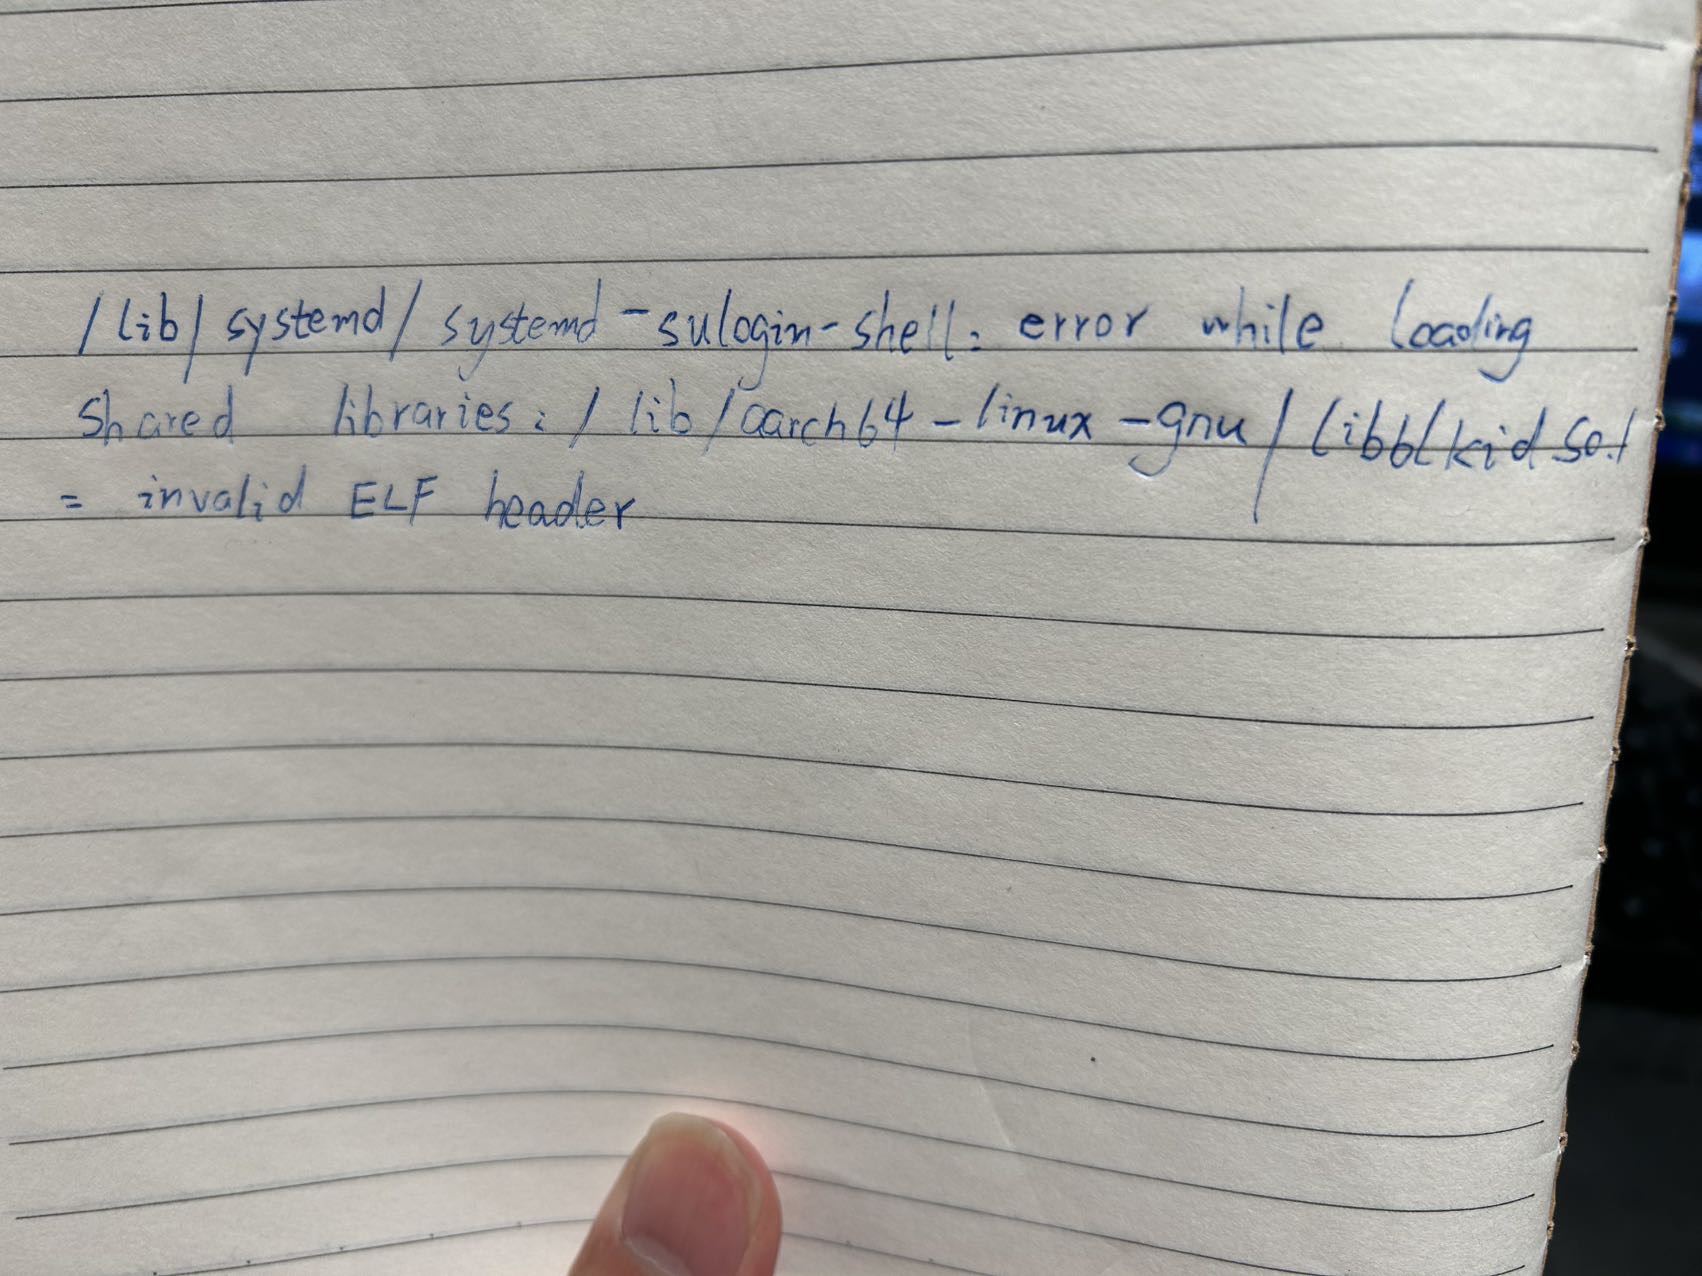 /lib/systemd/systemd-sulogin-shell: error while loading
shared libraries: /lib/aarch64-linux-gnu/libblkid so.1
= invalid ELF header